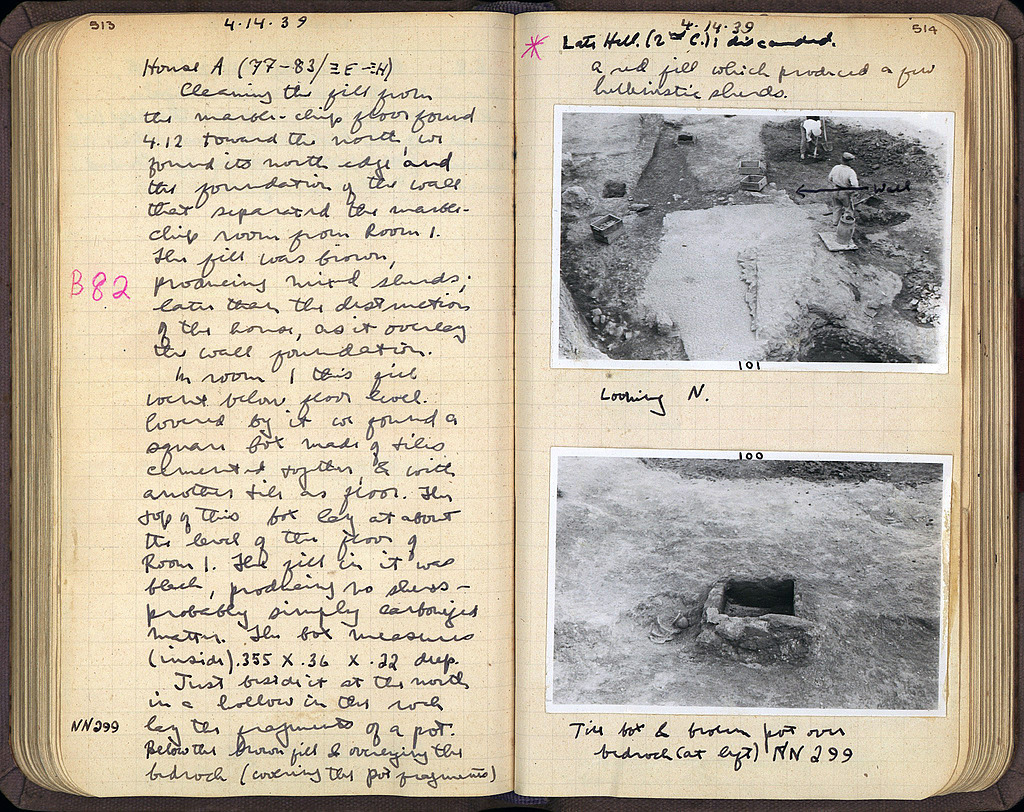 513
4.14.39
House A (77-83/ΞE-ΞH)
Cleaning the fill from
the marble-chip floor found
4.12 toward the north, we
found its north edge and
the foundation of the wall
that separated the marble-
chip room from Room 1.
The fill was brown,
B82
producing mixed sherds;
later than the destruction
of the house, as it overlay
the wall foundation.
In room 1 this fill
went below floor level.
Covered by it we found a
square box made of tiles
cemented together, & with
another tile as floor. The
top of this box lay at about
the level of the floor of
Room 1. The fill in it was
black, producing no sherds -
probably simply carbonized
matter. The box measures
(inside) .355 X .36 X .22 deep.
Just beside it at the north
in a hollow in the rock
NN299
lay the fragments of a pot.
Below the brown fill & overlying the
bedrock (covering the pot fragments)
514
4.14.39
* Late Hell. (2nd C.); discarded.
a red fill which produced a few
hellenistic sherds.
Wall
101
Looking N.
100
Tile box & broken pot over
bedrock (at left) NN299